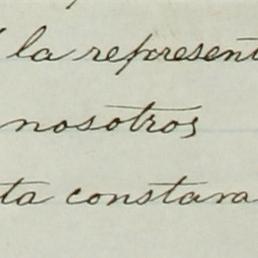 la represent
nosotros
ta constara